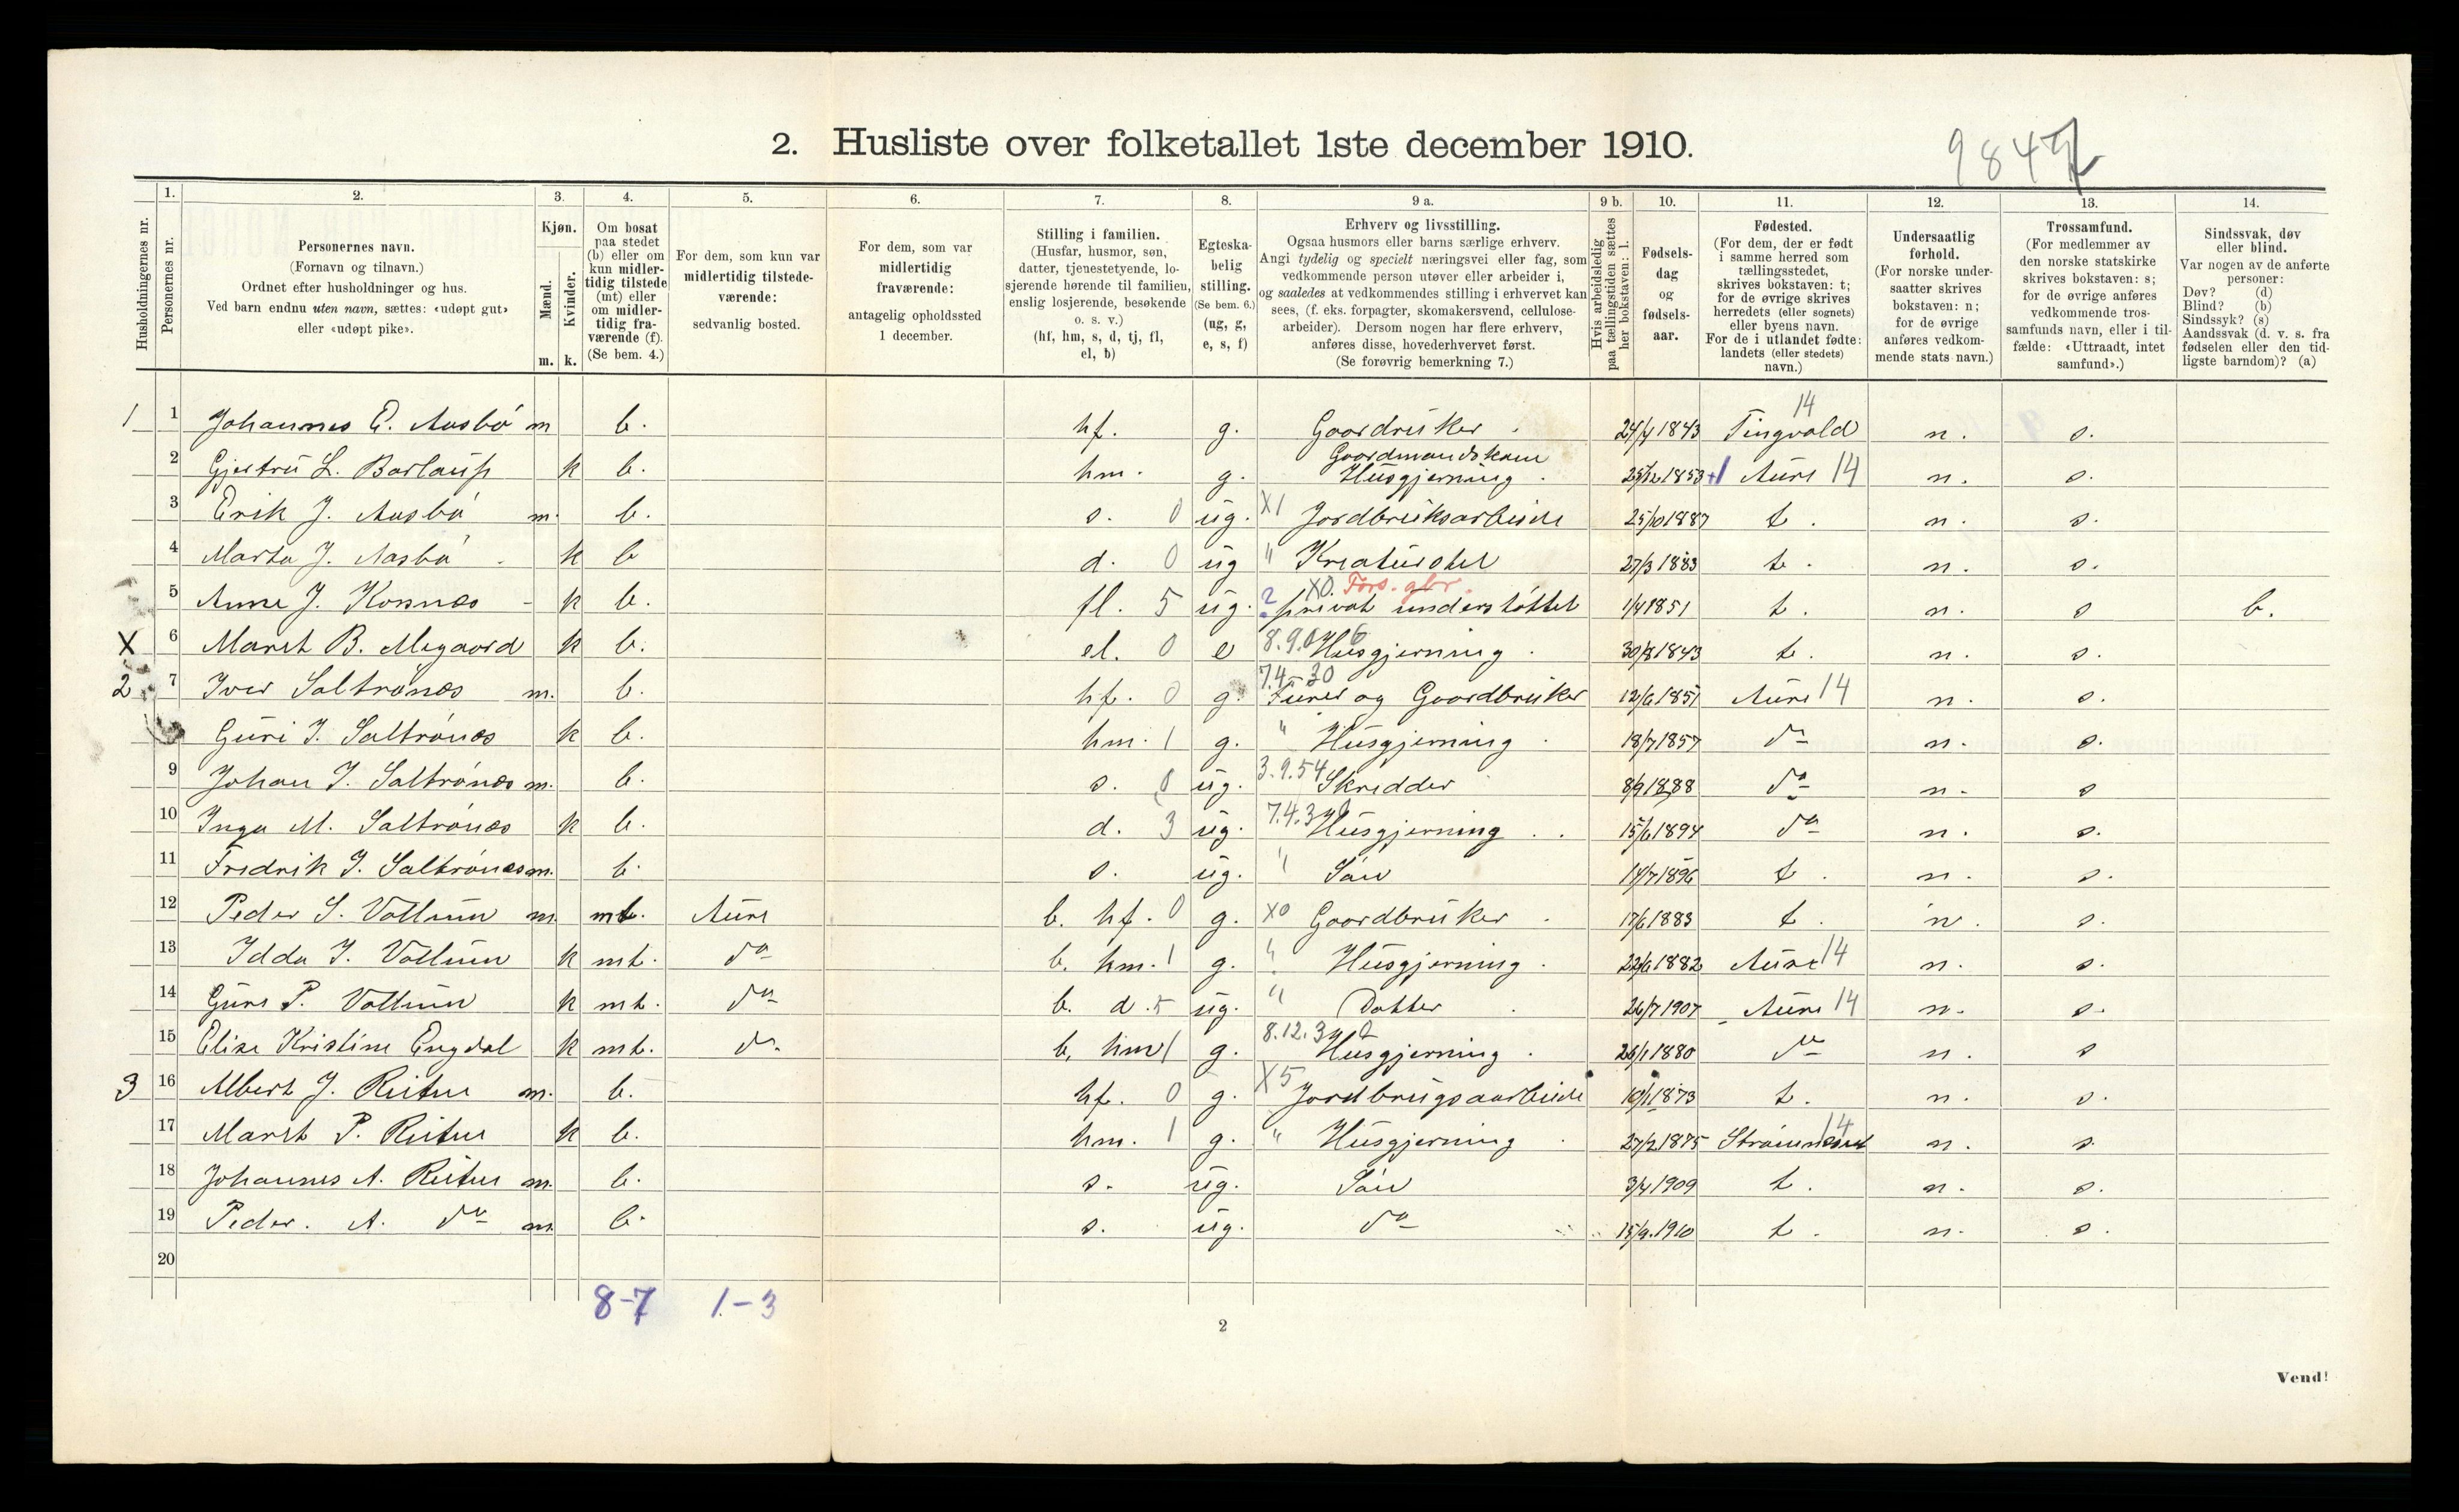 2. Husliste over folketallet 1ste december 1910.
9847
Husholdningernes nr.
1. Personernes nr.
2. Personernes navn. (Fornavn og tilnavn.) Ordnet efter husholdninger og hus. Ved barn endnu uten navn, sættes: «udøpt gut» eller «udøpt pike».
3. Kjøn. Mænd. m. Kvinder. k.
4. Om bosat paa stedet (b) eller om kun midlertidig tilstede (mt) eller om midlertidig fraværende (f). (Se bem. 4.)
5. For dem, som kun var midlertidig tilstedeværende: sedvanlig bosted.
6. For dem, som var midlertidig fraværende: antagelig opholdssted 1 december.
7. Stilling i familien. (Husfar, husmor, søn, datter, tjenestetyende, losjerende hørende til familien, enslig losjerende, besøkende o. s. v.) (hf, hm, s, d, tj, fl, el, b)
8. Egteskabelig stilling. (Se bem. 6.) (ug, g, e, s, f)
9 a. Erhverv og livsstilling. Ogsaa husmors eller barns særlige erhverv. Angi tydelig og specielt næringsvei eller fag, som vedkommende person utøver eller arbeider i, og saaledes at vedkommendes stilling i erhvervet kan sees, (f. eks. forpagter, skomakersvend, cellulosearbeider). Dersom nogen har flere erhverv, anføres disse, hovederhvervet først. (Se forøvrig bemerkning 7.)
9 b. Hvis arbeidsledig paa tællingstiden sættes her bokstaven: l.
10. Fødselsdag og fødselsaar.
11. Fødested. (For dem, der er født i samme herred som tællingsstedet, skrives bokstaven: t; for de øvrige skrives herredets (eller sognets) eller byens navn. For de i utlandet fødte: landets (eller stedets) navn.)
12. Undersaatlig forhold. (For norske undersaatter skrives bokstaven: n; for de øvrige anføres vedkommende stats navn.)
13. Trossamfund. (For medlemmer av den norske statskirke skrives bokstaven: s; for de øvrige anføres vedkommende trossamfunds navn, eller i tilfælde: «Uttraadt, intet samfund».)
14. Sindssvak, døv eller blind. Var nogen av de anførte personer: Døv? (d) Blind? (b) Sindssyk? (s) Aandssvak (d. v. s. fra fødselen eller den tidligste barndom)? (a)
1 1 Johannes E. Aasbö m b. hf. g. Gaardbruker 24/4 1843 Tingvold 14 n. s.
2 Gjertru L. Barlaup k b. hm. g. Gaardmandskone Husgjerning 25/12 1853 +1 Aure 14 n. s.
3 Erik J. Aasbö m. b. s. 0 ug. X1 Jordbruksarbeide 25/10 1887 t. n. s.
4 Marta J. Aasbö k b d. 0 ug " Kreaturstel 27/3 1883 t. n. s.
5 Anne J. Korsnæs k b. fl. 5 ug. ? X0. Fors. gbr. privat understöttet 1/4 1851 t. n. s b.
X 6 Marit B. Megaard k b. el. 0 e 8.9.06 Husgjerning 30/8 1843 t. n. s.
2 7 Iver Saltrönæs m. b. hf. 0 g. 7.4-30 Furer og Gaardbruker 12/6 1851 Aure 14 n. s.
Guri I. Saltrönæs k b. hm. 1 g. " Husgjerning 18/7 1857 do n. s.
9 Johan I. Saltrönæs m. b. s. 0 ug. 3.9.54 Skredder 8/9 1888 do n. s
10 Inga M. Saltrönæs k b. d. 3 ug. 7.4.3 Husgjerning 15/6 1894 do n. s.
11 Fredrik I. Saltrönæs m. b. s. ug. " Sön 14/7 1896 t. n. s.
12 Peder S. Vollum m mt. Aure b. hf. 0 g. X0 Gaardbruker 17/6 1883 t. n. s.
13 Idda I. Vollum k mt. do b. hm. 1 g. " Husgjerning 22/6 1882 Aure 14 n. s.
14 Guri P. Vollum k mt. do b. d. 5 ug. " Datter 26/7 1907 Aure 14 n. s.
15 Elise Kristine Engdal k mt. do. b. hm 1 g. 8.12.3 Husgjerning 26/1 1880 do n. s
3 16 Albert J. Reitus m. b. hf. 0 g. X5 Jordbrugsaarbeide 10/1 1873 t. n. s.
17 Marit P. Reitus k b. hm. 1 g. " Husgjerning 27/2 1875 Strömsneset 14 n. s.
18 Johannes A. Reitus m. b. s. ug. Sön 3/4 1909 t. n. s.
19 Peder. A. do m b. s. ug. do 15/9. 1910 t. n. s.
20
8-7 1.-3
2
Vend!